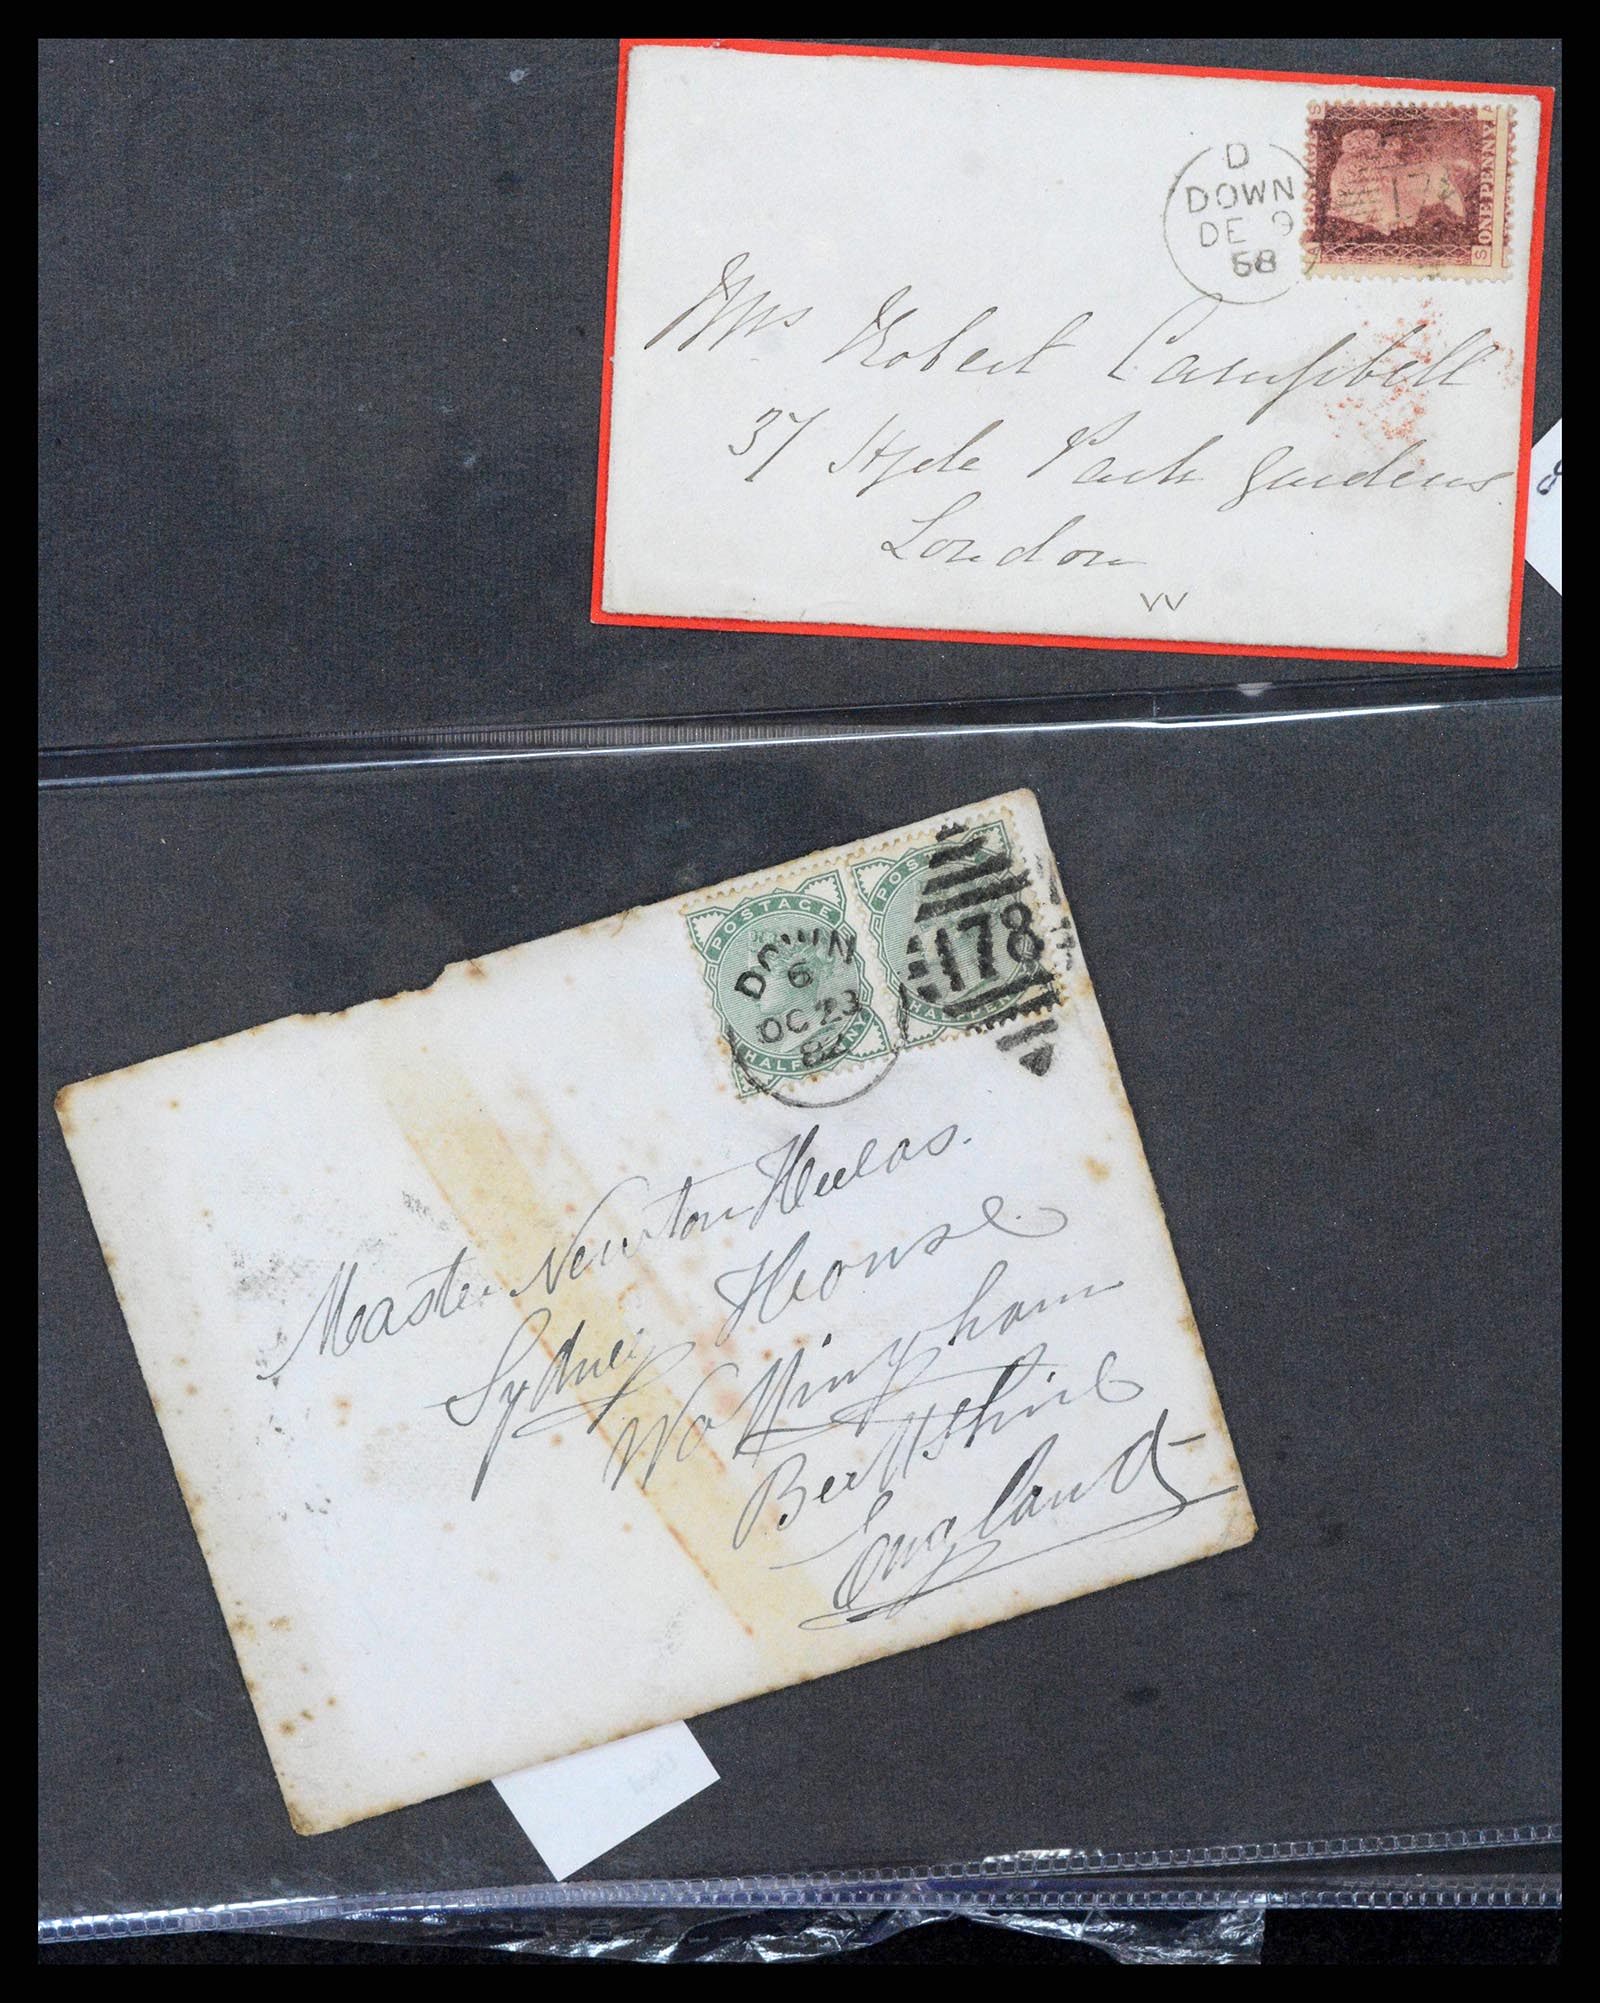 D
DOWN
DE 9
58
178
ONE PENNY
S
A
S
A
Mrs Robert Campbell
37 Hyde Park Gardens
London
W
POSTAGE
HALFPENNY
POS
HALFPEN
DOWN
6
OC 23
82
178
Master Newton
Sydney House
Wokingham
Berkshire
England
Used